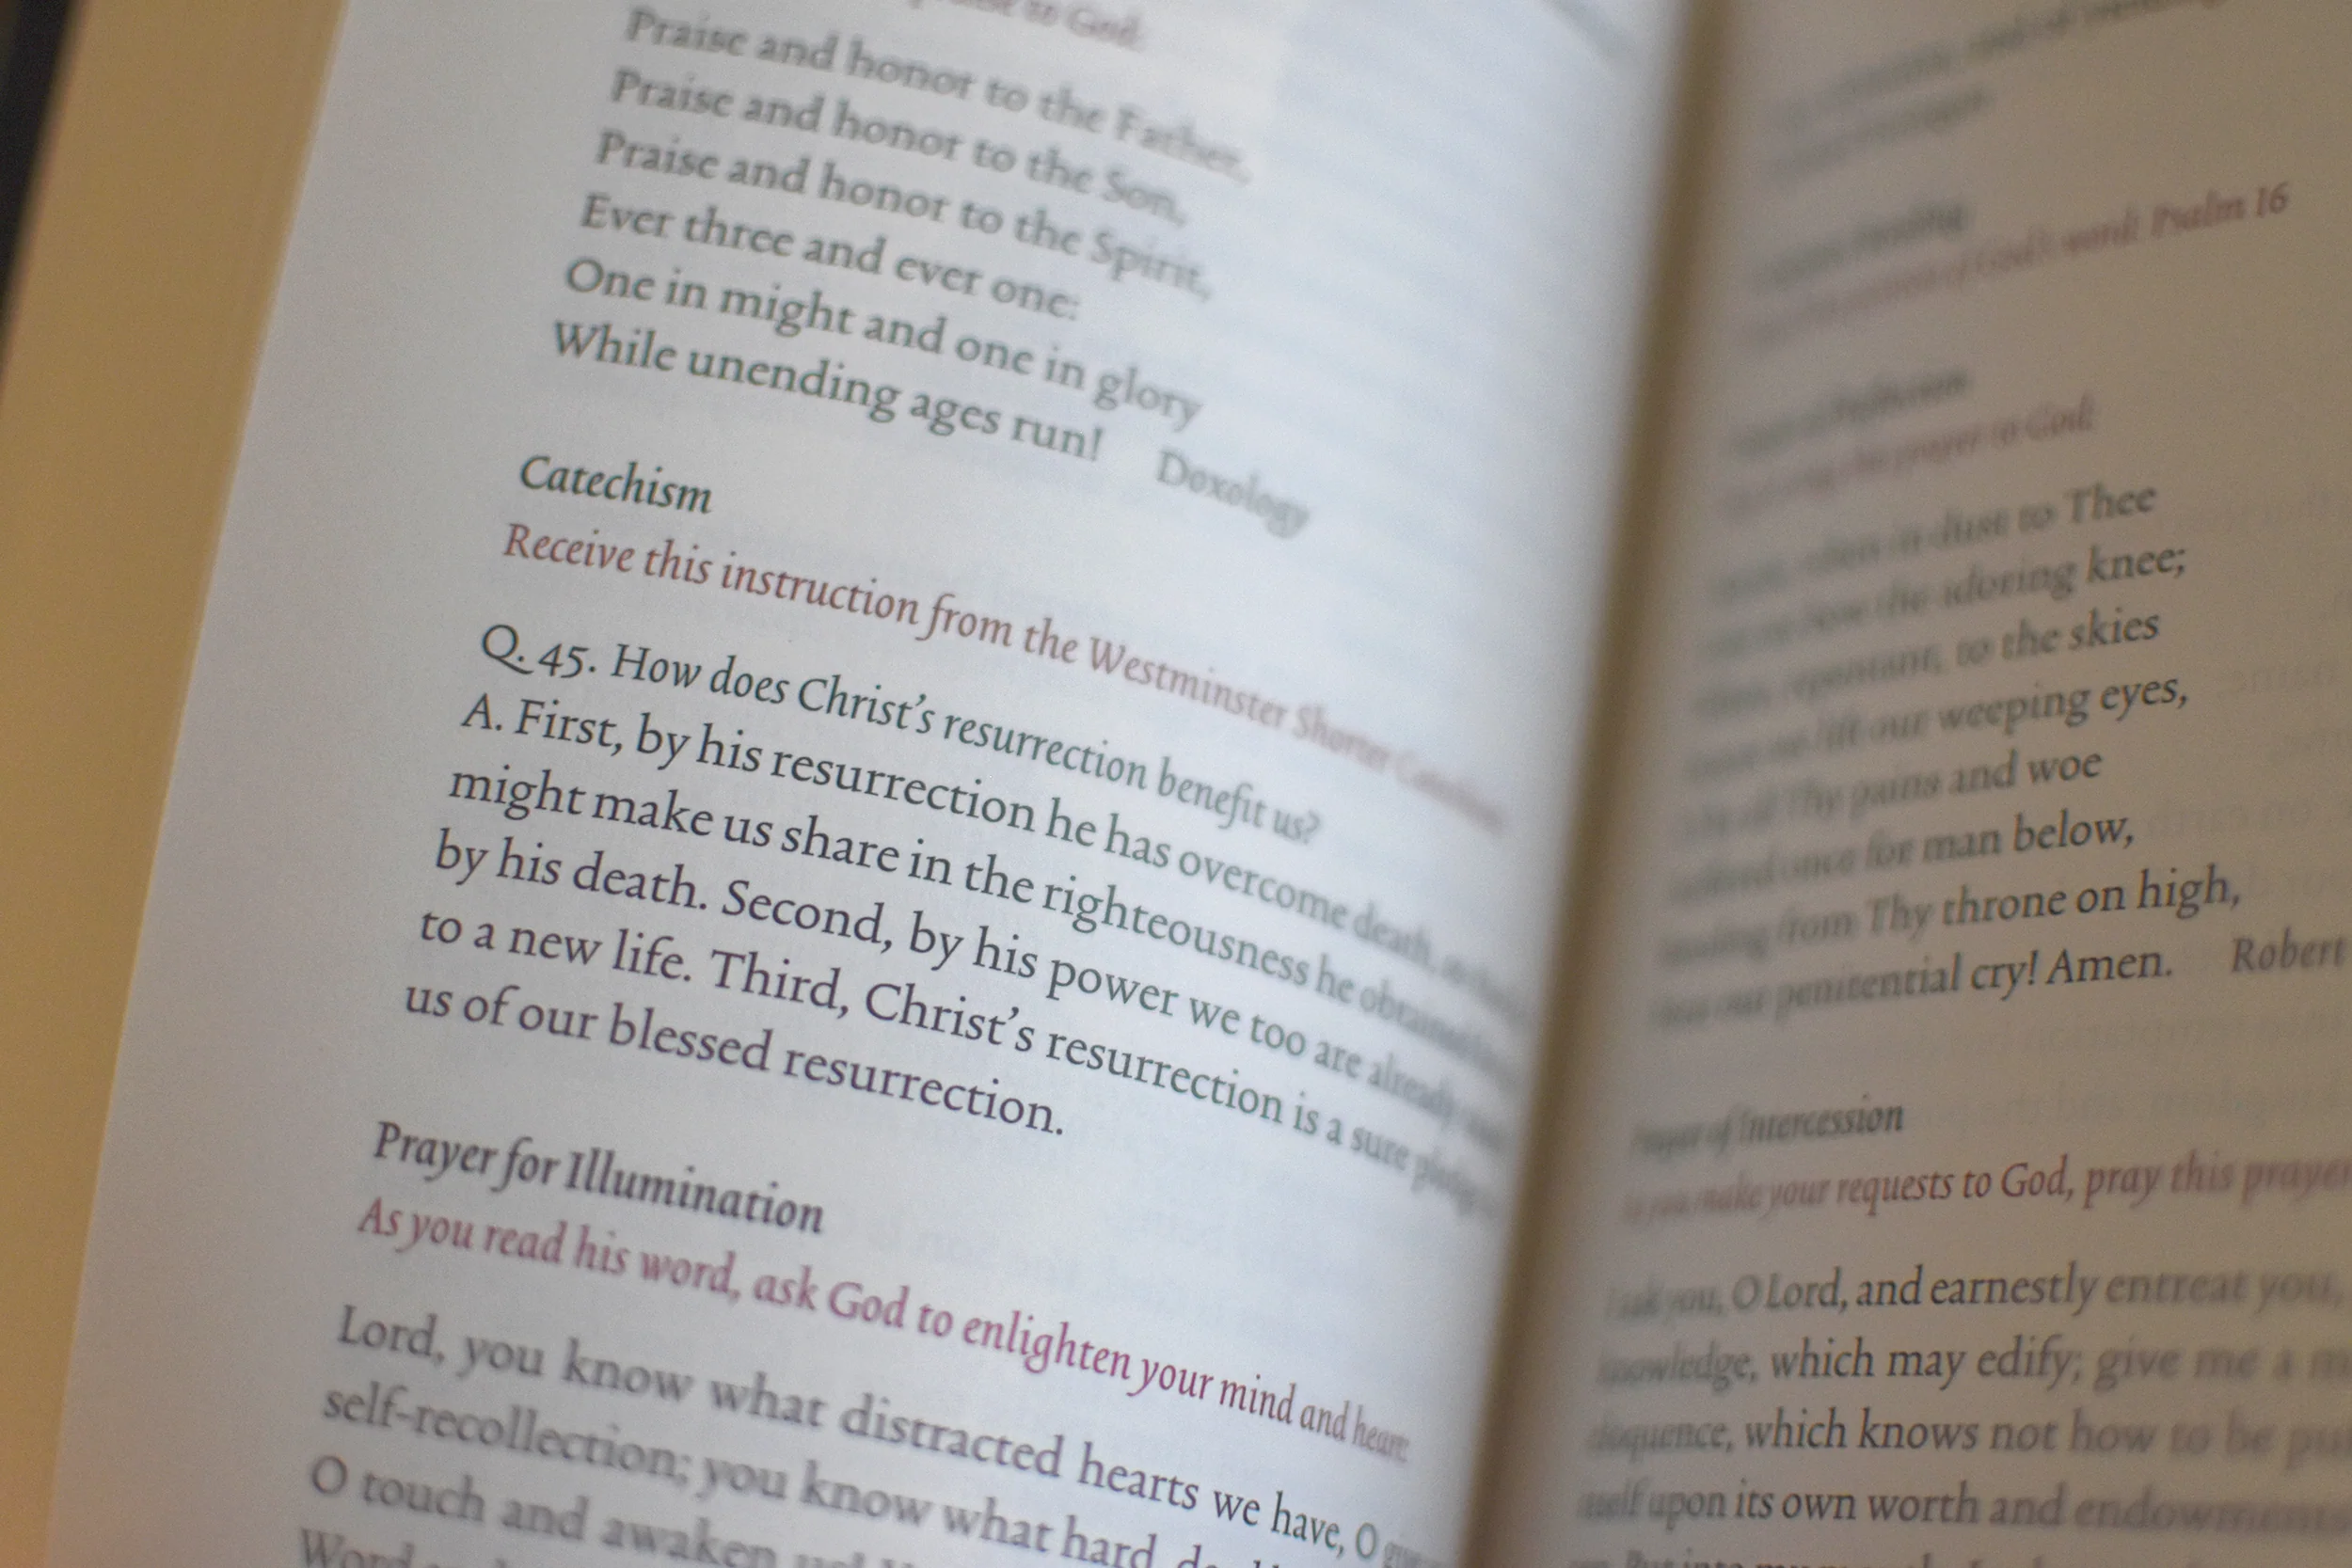 to God:
Praise and honor to the Father,
Praise and honor to the Son,
Praise and honor to the Spirit,
Ever three and ever one:
One in might and one in glory
While unending ages run! Doxology
Catechism
Receive this instruction from the Westminster Shorter
Q. 45. How does Christ's resurrection benefit us?
A. First, by his resurrection he has overcome death,
might make us share in the righteousness he obtained
by his death. Second, by his power we too are already
to a new life. Third, Christ's resurrection is a sure pledge
us of our blessed resurrection.
Prayer for Illumination
As you read his word, ask God to enlighten your mind and heart:
Lord, you know what distracted hearts we have, O
self-recollection; you know what hard,
O touch and awaken
Word
God's word: Psalm 16
prayer to God:
dust to Thee
the adoring knee;
repentant, to the skies
lift our weeping eyes,
Thy pains and woe
once for man below,
from Thy throne on high,
our penitential cry! Amen. Robert
Prayer of Intercession
make your requests to God, pray this prayer
you, O Lord, and earnestly entreat you,
knowledge, which may edify; give me a
eloquence, which knows not how to be
itself upon its own worth and endowments